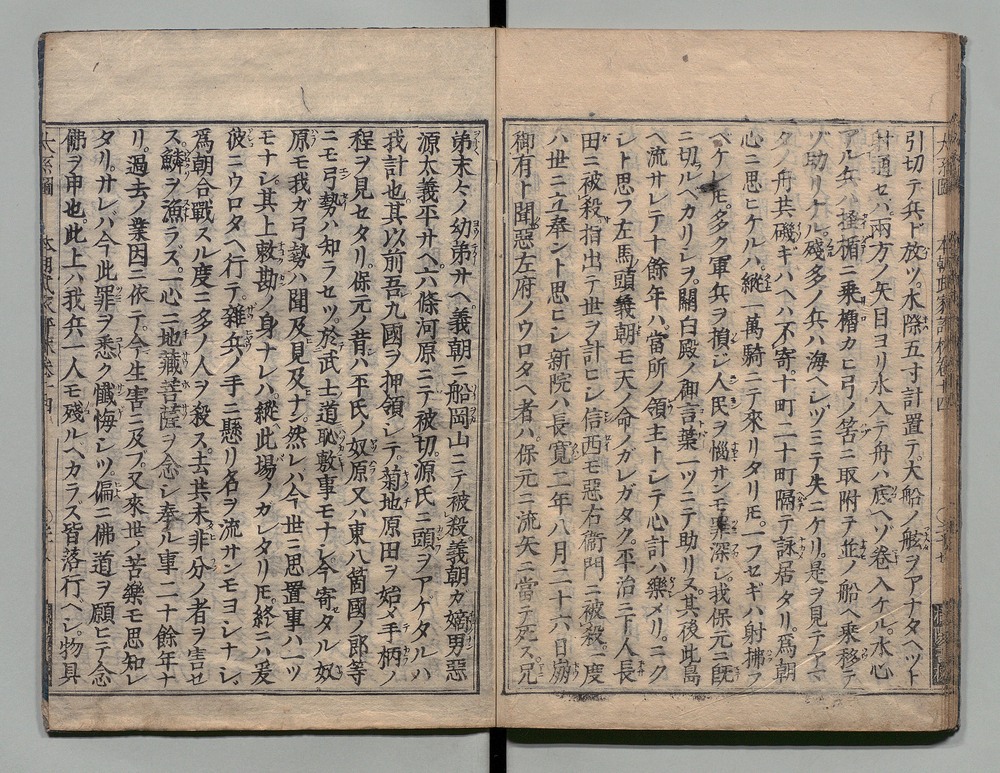 引切テ兵ド放ツ。水際五寸計置テ。大船ノ舷ヲアナタヘツト
射通セバ。兩方ノ矢目ヨリ水入テ舟ハ底ヘゾ卷入ケル。水心
アル兵ハ楯ニ乗櫓カヒ弓ノ筈ニ取附テ並ノ船ヘ乗移テ
ゾ助リケル。殘多ノ兵ハ海ヘシヅミテ失ニケリ。是ヲ見テアマ
タノ舟共磯ギハヘハ不寄。十町二十町隔テ詠居タリ。爲朝
心ニ思ヒケルハ。縱一萬騎ニテ來リタリモ。一フセギハ射拂フ
ベケレ𪜈。多ク軍兵ヲ損シ人民ヲ惱サンモ罪深シ。我保元ニ既
ニ切ルベカリシヲ。關白殿ノ御言葉一ツニテ助リヌ其後此島
ヘ流サレテ十餘年ハ。當所ノ領主トシテ心計ハ樂メリ。ニク
シト思フ左馬頭義朝モ天ノ命ノガレガタク。平治ニ下人長
田ニ被殺。指出テ世ヲ計ヒシ信西モ惡右衞門ニ被殺。一度
ハ世ニユ奉ント思ヒシ新院ハ長寛二年八月二十六日崩
御有ト聞惡左府ノウロタヘ者ハ。保元ニ流矢ニ當テ死ス兄
弟末々ノ幼弟サヘ義朝ニ船岡山ニテ被殺。義朝カ嫡男惡
源太義平サヘ六條河原ニテ被切。源氏ニ頭ヲアゲタルハ
我計也。其以前吾九國ヲ押領シテ。菊地原田ヲ始メ手柄ノ
程ヲ見セタリ。保元ノ昔ハ平氏ノ奴原又ハ東八箇國ノ郎等
ニモ弓勢ハ知ラセツ。於武士ノ道恥敷事モナシ今寄タル奴
原モ我ガ弓勢ハ聞及見及ナン。然レハ今世ニ思置事ハ一ツ
モナシ。其上敕勘ノ身ナレハ。縱此場ノカレタリモ。終ニハ爰
彼ニウロタヘ行テ。雜兵ノ手ニ懸リ名ヲ流サンモヨシナシ。
爲朝合戰スル度ニ多ノ人ヲ殺ス。去共未非分ノ者ヲ害セ
ス。鱗ヲ漁ラズ。一心ニ地藏菩薩ヲ念シ奉ル事二十餘年ナ
リ。過去ノ業因ニ依テ。今生害ニ及ブ。又來世ノ苦樂モ思知レ
タリ。サレバ今此罪ヲ悉ク懺悔シツ。偏ニ佛道ヲ願ヒテ念
佛ヲ申也。此上ハ我兵一人モ殘ルベカラス皆落行ベシ。物具
大系圖
本朝武家評林卷十四